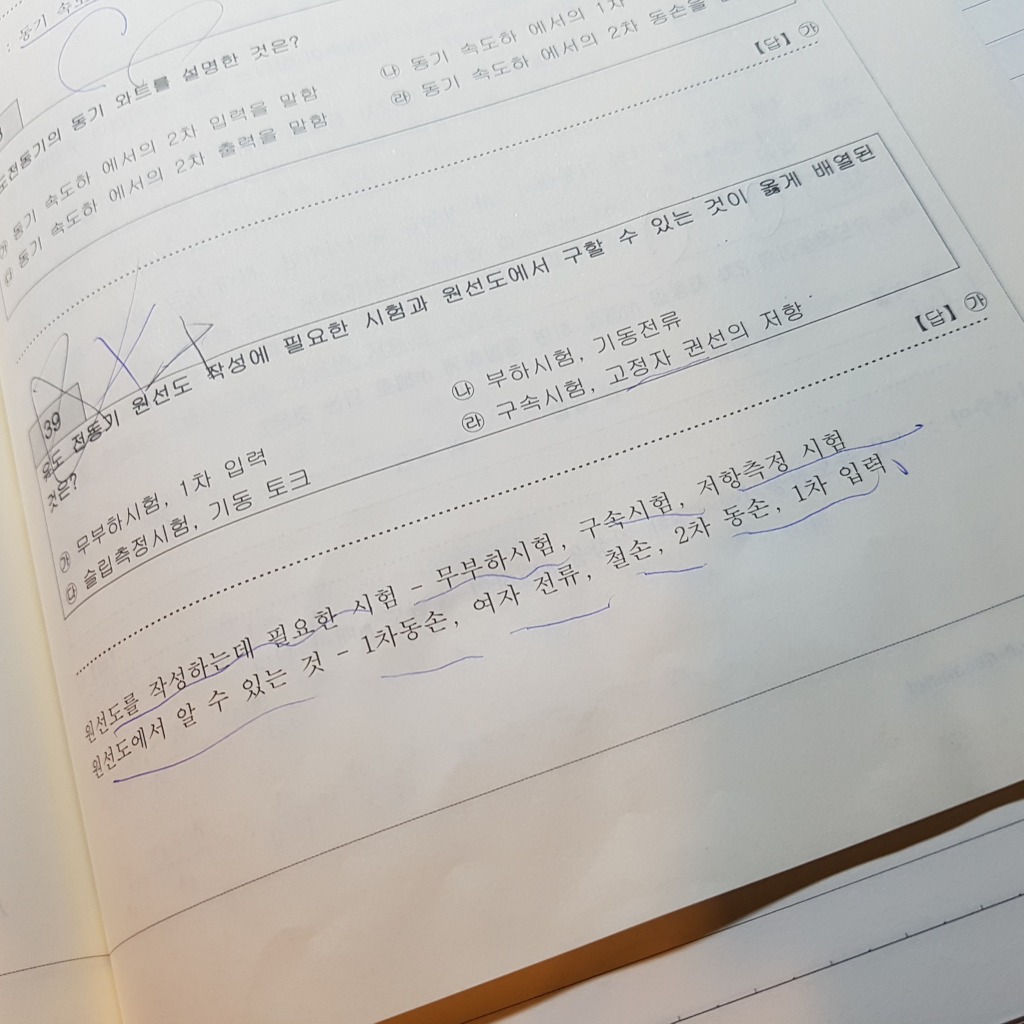 : 동기 속도
도전동기의 동기 와트를 설명한 것은?
㉮ 동기 속도하 에서의 2차 입력을 말함
㉯ 동기 속도하 에서의 1차
㉰ 동기 속도하 에서의 2차 출력을 말함
㉱ 동기 속도하 에서의 2차 동손을
【답】㉮
39
유도 전동기 원선도 작성에 필요한 시험과 원선도에서 구할 수 있는 것이 옳게 배열된
것은?
㉮ 무부하시험, 1차 입력
㉯ 부하시험, 기동전류
㉰ 슬립측정시험, 기동 토크
㉱ 구속시험, 고정자 권선의 저항
【답】㉮
원선도를 작성하는데 필요한 시험 - 무부하시험, 구속시험, 저항측정 시험
원선도에서 알 수 있는 것 - 1차동손, 여자 전류, 철손, 2차 동손, 1차 입력